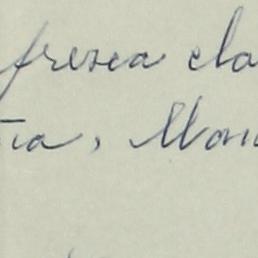 fresca cla
ia, Mon